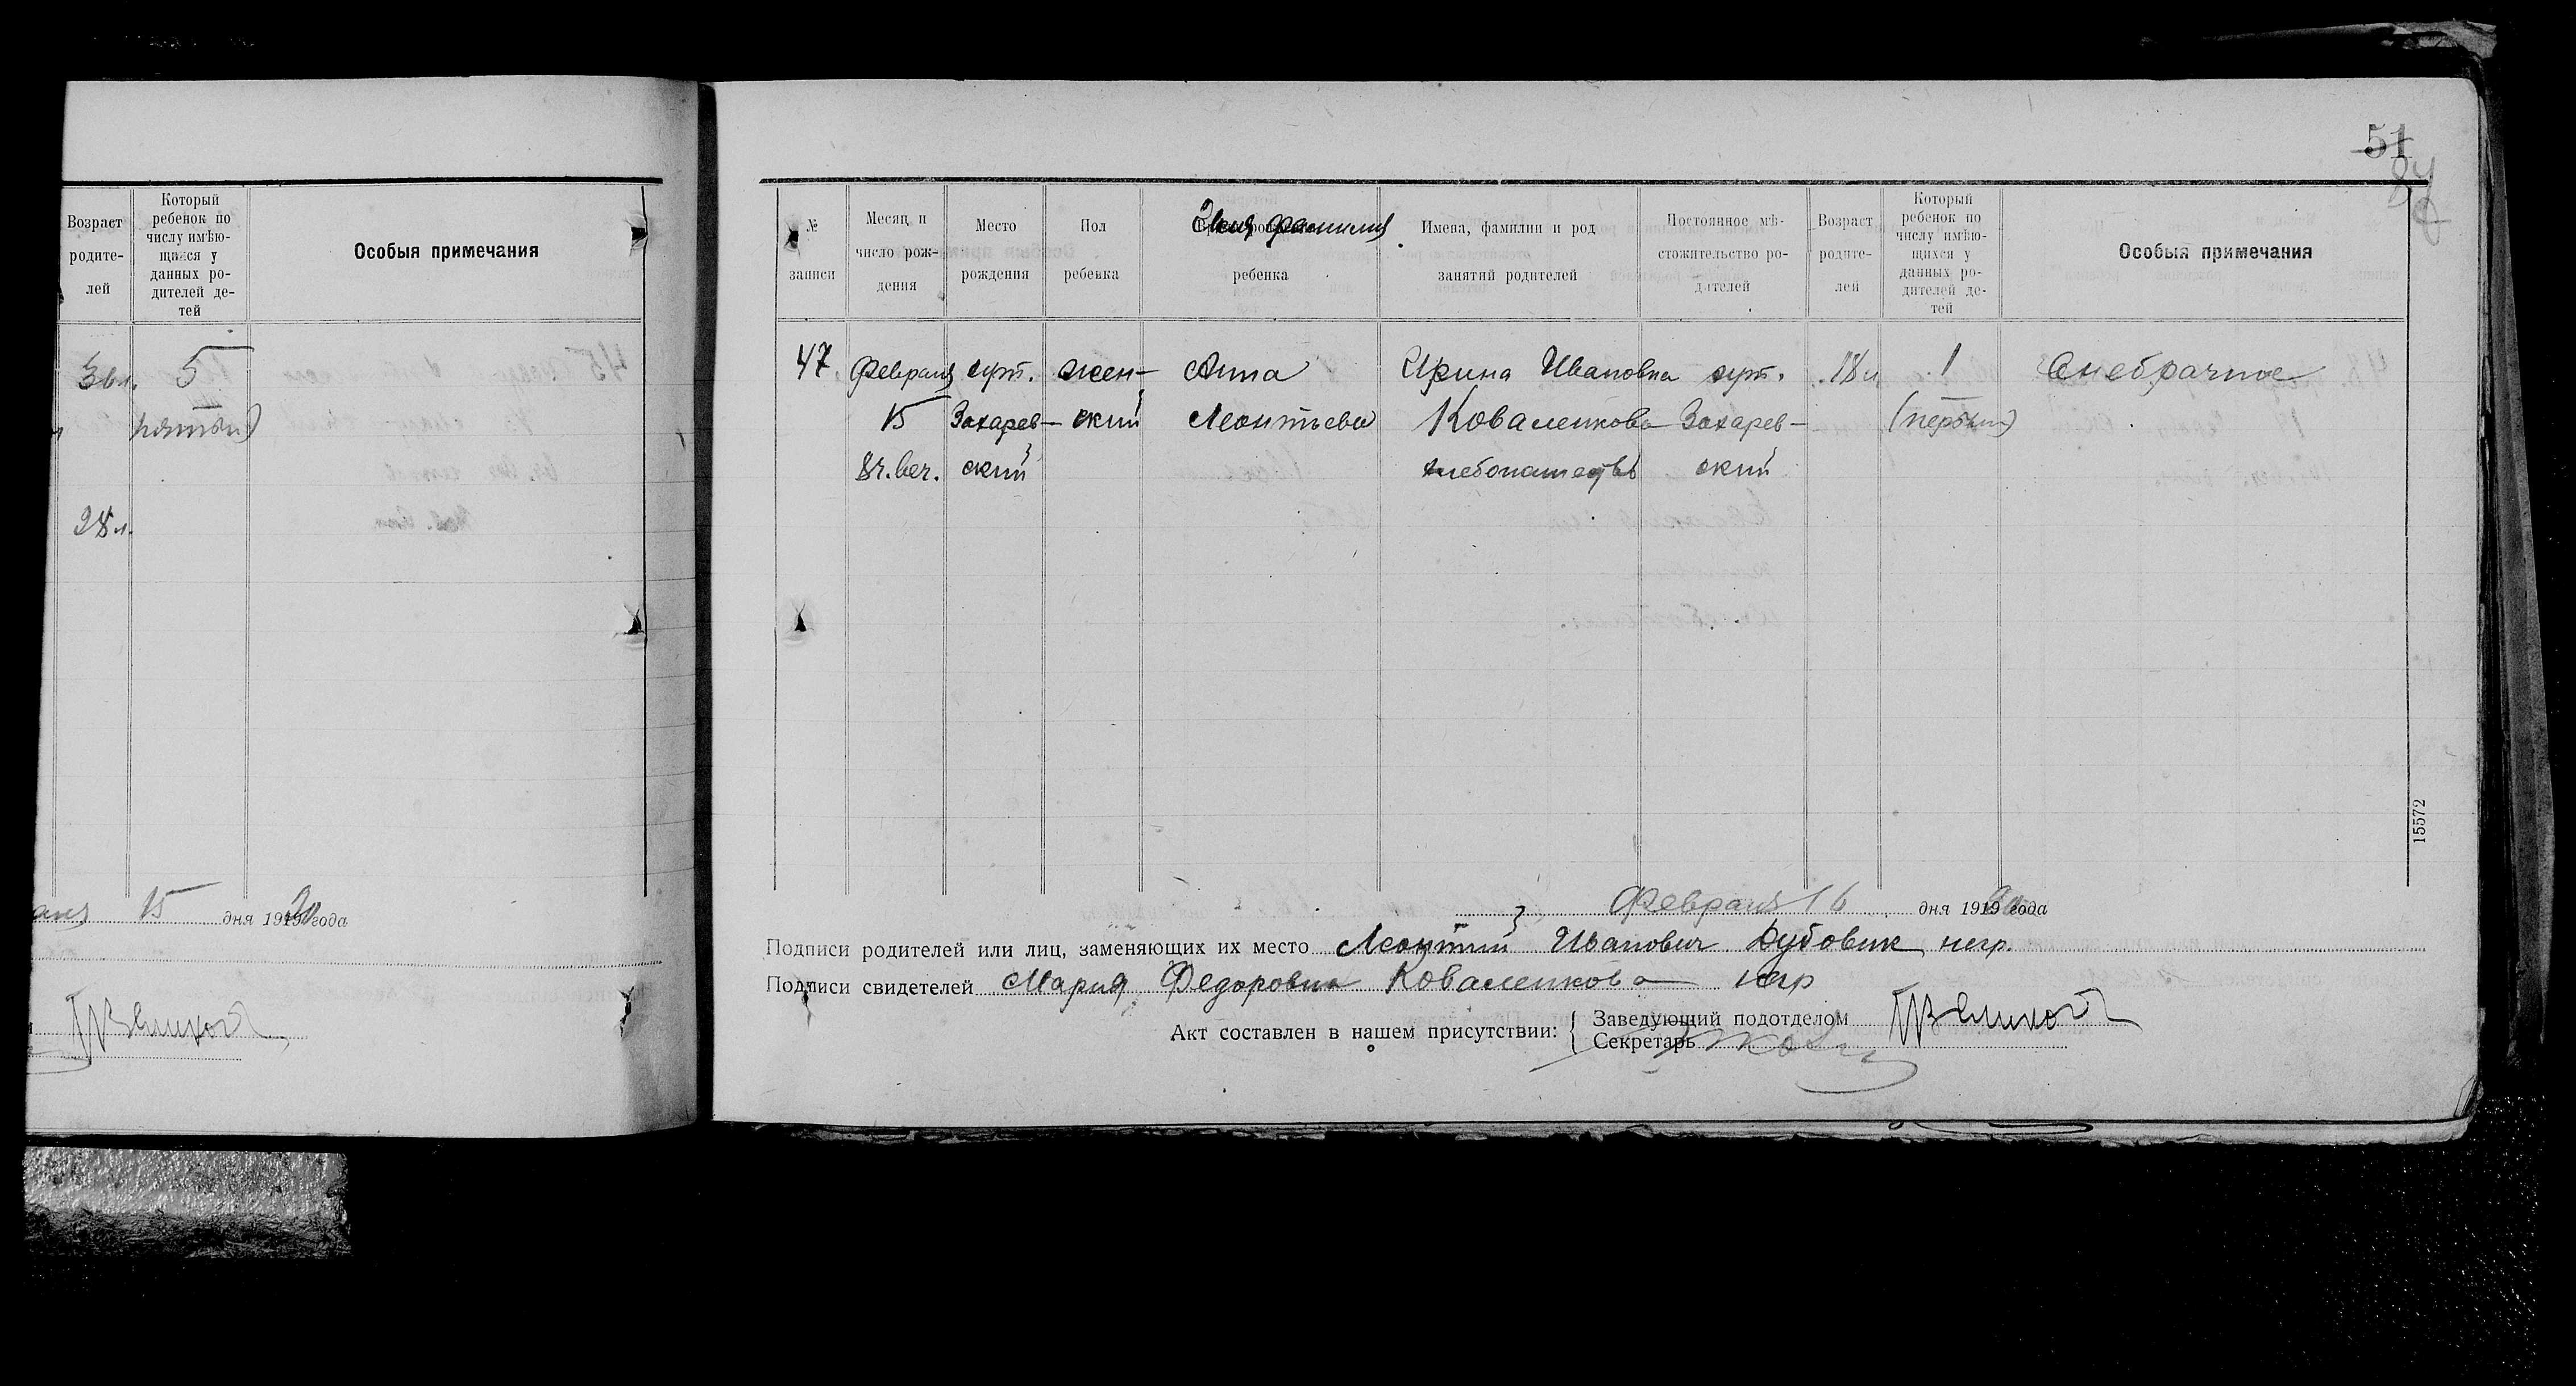 51
Возраст родите-лей
Который ребенок по числу имѣю-щихся у данных ро-дителей де-тей
Особыя примечания
36 л.
5
(пятый)
28 л.
15 дня 1920 года
№ записи
Месяц и число рож-дения
Место рождения
Пол ребенка
Имя фамилия ребенка
Имена, фамилии и род занятий родителей
Постоянное мѣ-стожительство ро-дителей
Возраст родите-лей
Который ребенок по числу имѣю-щихся у данных ро-дителей де-тей
Особыя примечания
47 Февраля хут. жен- Анна Ирина Ивановна хут. 18 л. 1 Внебрачное
15 Захарев- ский Леонтьева Коваленкова Захарев- (первый)
8 ч. веч. ский хлебопашество ский
15572
Февраля 16 дня 1920 года
Подписи родителей или лиц, заменяющих их место Леонтий Иванович Дубовик негр.
Подписи свидетелей Мария Федоровна Коваленкова негр
Акт составлен в нашем присутствии: { Заведующий подотделом
Секретарь